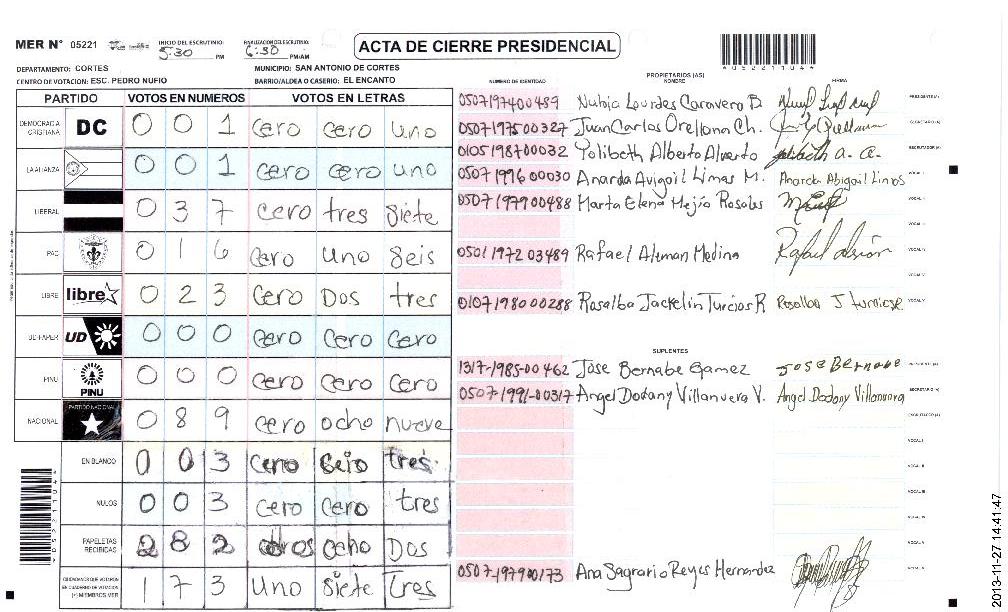 MER N° 05221 INICIO DEL ESCRUTINIO: 5:30 PM FINALIZACION DEL ESCRUTINIO: 6:30 PM/AM
ACTA DE CIERRE PRESIDENCIAL
DEPARTAMENTO: CORTES MUNICIPIO: SAN ANTONIO DE CORTES
CENTRO DE VOTACION: ESC. PEDRO NUFIO BARRIO/ALDEA O CASERIO: EL ENCANTO
PARTIDO VOTOS EN NUMEROS VOTOS EN LETRAS
DEMOCRACIA CRISTIANA DC 0 0 1 cero cero uno
LA ALIANZA 0 0 1 cero cero uno
LIBERAL 0 3 7 cero tres siete
PAC 0 1 6 cero uno seis
LIBRE libre 0 2 3 cero Dos tres
UD-FAPER UD 0 0 0 cero cero cero
PINU PINU 0 0 0 cero cero cero
NACIONAL PARTIDO NACIONAL 0 8 9 cero ocho nueve
EN BLANCO 0 0 3 cero tres
NULOS 0 0 3 cero cero tres
PAPELETAS RECIBIDAS 2 8 2 ocho Dos
CIUDADANOS QUE VOTARON EN CUADERNO DE VOTACION (+) MIEMBROS MER 1 7 3 uno siete tres
NUMERO DE IDENTIDAD PROPIETARIOS (AS) NOMBRE FIRMA
0507197400489 Nubia Lourdes Caravero B PRESIDENTE (A)
0507197500327 Juan Carlos Orellana Ch. SECRETARIO (A)
0105198700032 Yolibeth Alberto Alverto yolibeth a. a. ESCRUTADOR (A)
0507199600030 Anarda Avigail Limas M. Anarda Abigail Limas VOCAL I
0507197900488 Marta Elena Mejia Rosales VOCAL II
0501197203489 Rafael Aleman Medina VOCAL III
VOCAL IV
0107198000288 Rosalba Jackelin Turcios R Rosalba J turcios VOCAL V
SUPLENTES
1317-1985-00462 Jose Bernabe Gamez Jose Bernabe PRESIDENTE (A)
0507-1991-00317 Angel Dodany Villanueva V. Angel Dodany Villanueva SECRETARIO (A)
ESCRUTADOR (A)
VOCAL I
VOCAL II
VOCAL III
VOCAL IV
VOCAL V
0507-197900173 Ana Sagrario Reyes Hernandez
2013-11-27 14:41:47